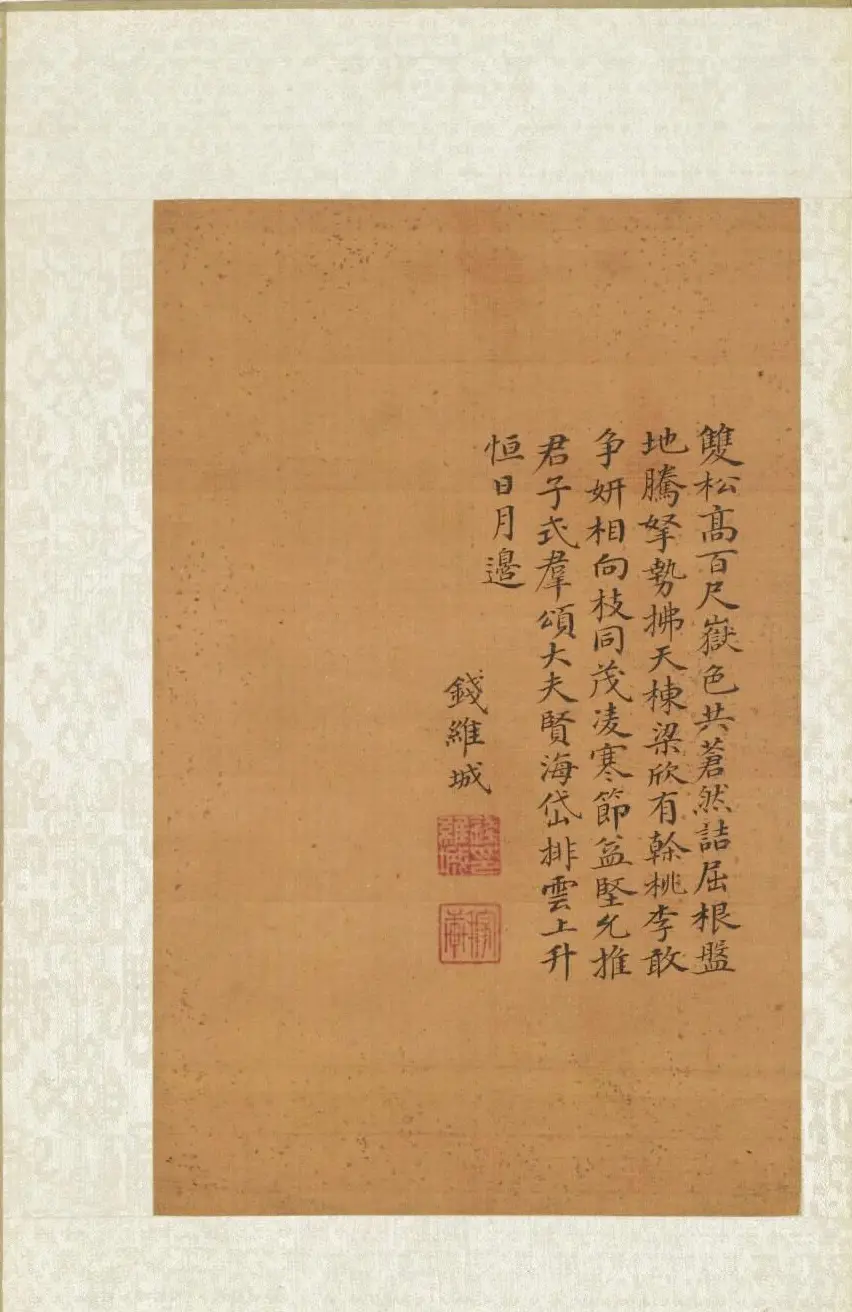 雙松髙百尺嶽色共蒼然詰屈根盤
地騰拏勢拂天棟梁欣有榦桃李敢
争妍相向枝同茂凌寒節益堅允推
君子式羣頌大夫賢海岱排雲上升
恒日月邊
錢維城
錢印維城